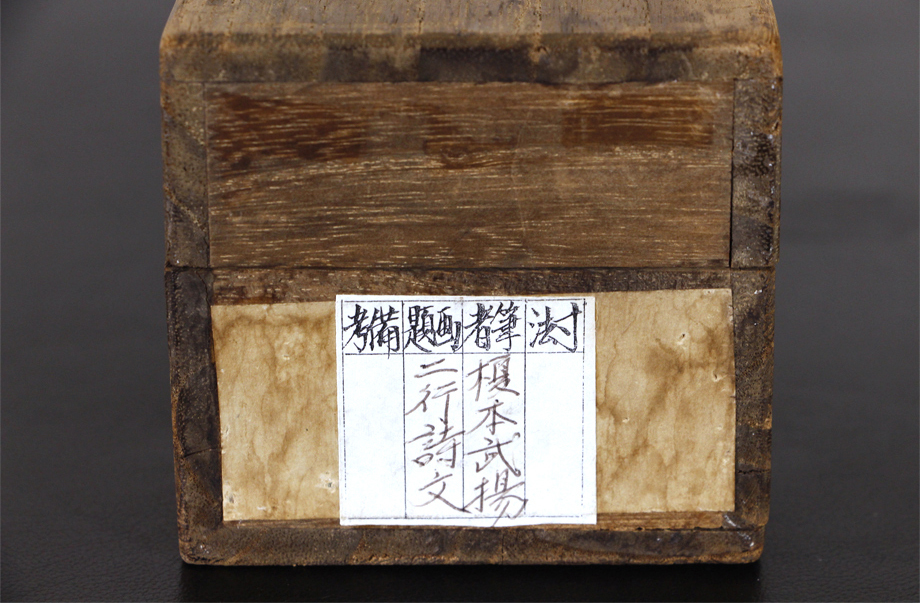 寸法
筆者
榎本武揚
画題
二行詩文
備考